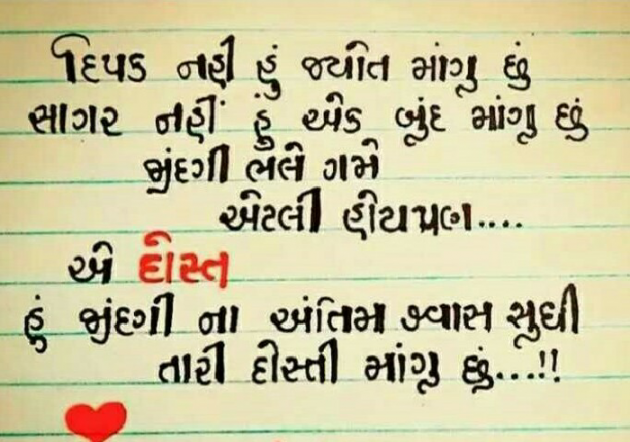 દિપક નહી હું જ્યોત માંગુ છું
સાગર નહીં હું એક બુંદ માંગુ છું
જીંદગી ભલે ગમે
એટલી હોયપણ....
એ દોસ્ત
હું જીંદગી ના અંતિમ શ્વાસ સુધી
તારી દોસ્તી માંગુ છું...!!